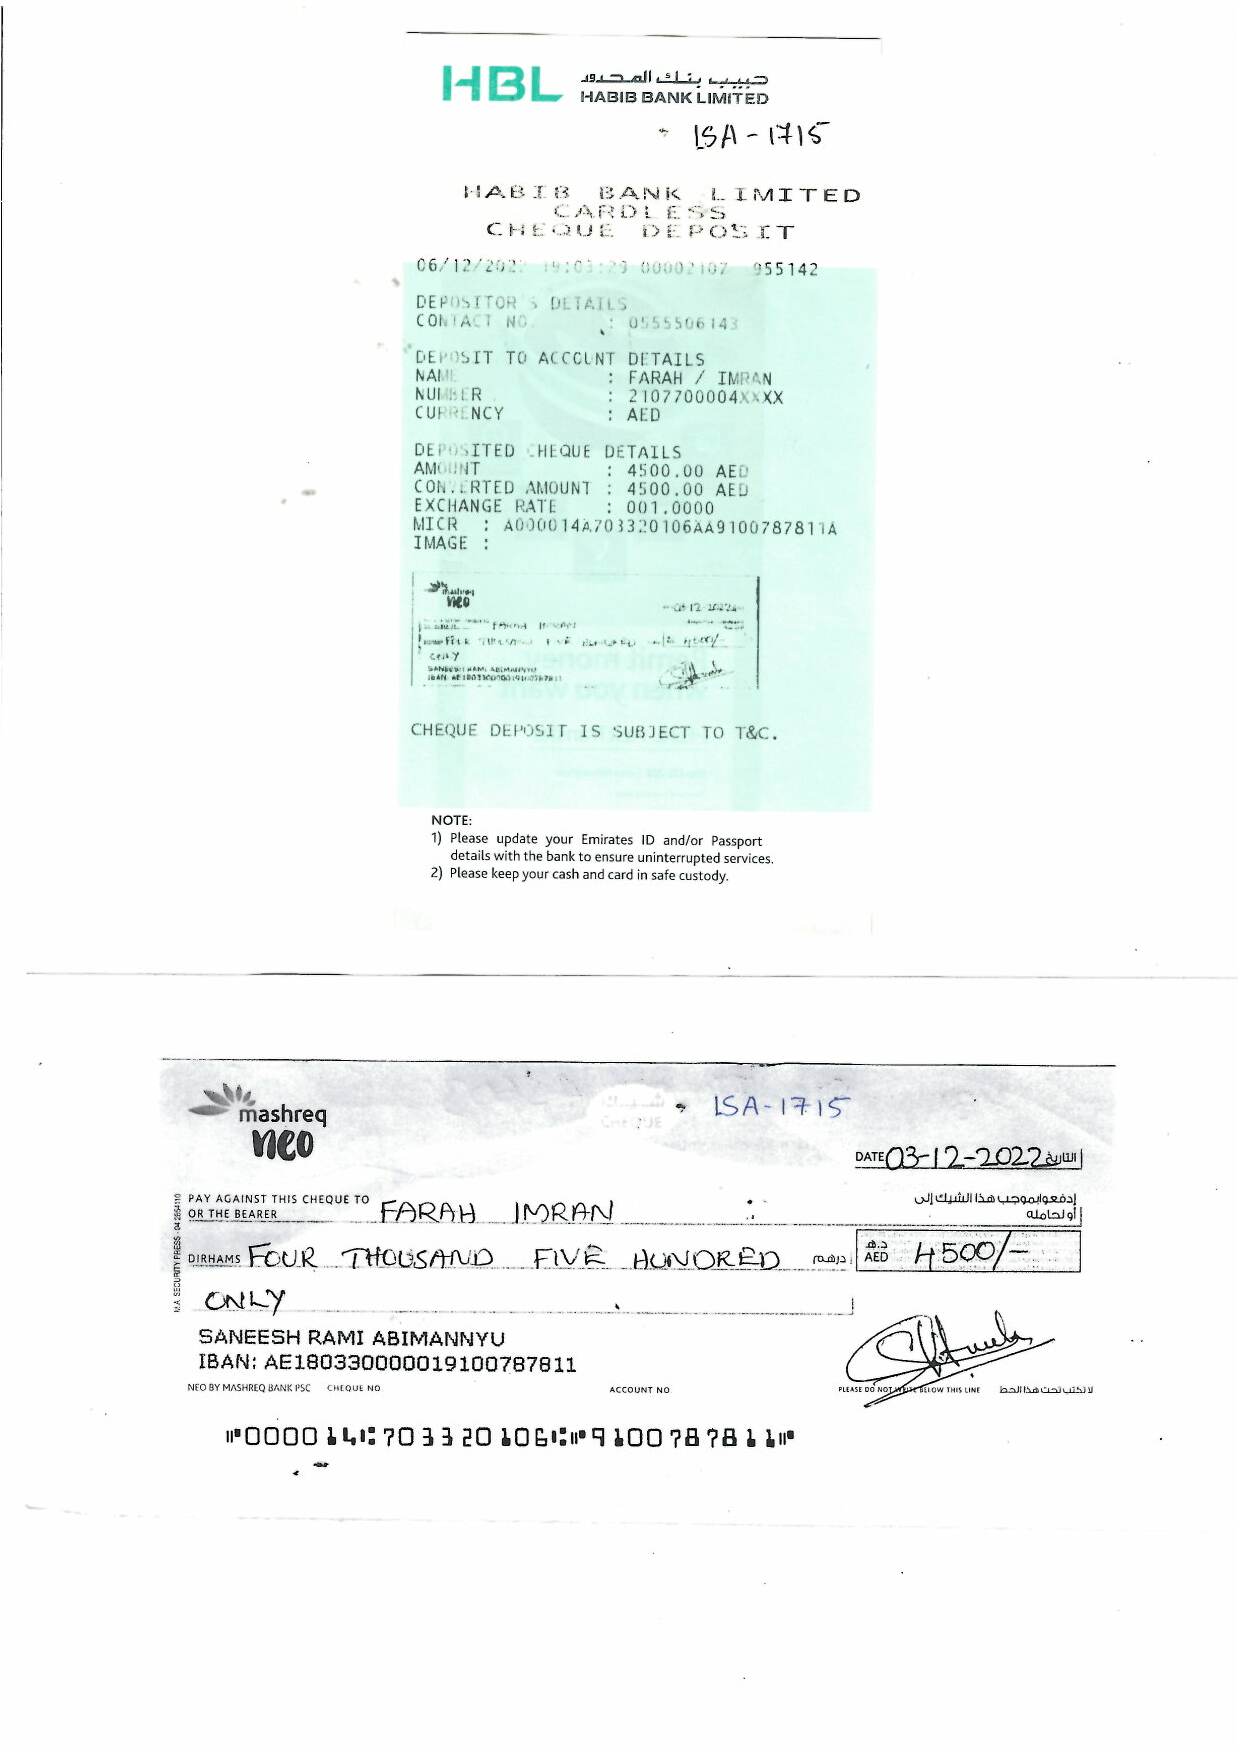 HBL حبيب بنك المحدود
HABIB BANK LIMITED
ISA-1715
HABIB BANK LIMITED
CARDLESS
CHEQUE DEPOSIT
06/12/2022 00002107 955142
DEPOSITOR S DETAILS
CONTACT NO. : 0555506143
DEPOSIT TO ACCOUNT DETAILS
NAME : FARAH / IMRAN
NUMBER : 2107700004XXXX
CURRENCY : AED
DEPOSITED CHEQUE DETAILS
AMOUNT : 4500.00 AED
CONVERTED AMOUNT : 4500.00 AED
EXCHANGE RATE : 001.0000
MICR : A000014A703320106AA9100787811A
IMAGE :
mashreq
neo
ONLY
SANEESH RAMI ABIMANNYU
IBAN: AE180330000019100787811
CHEQUE DEPOSIT IS SUBJECT TO T&C.
NOTE:
1) Please update your Emirates ID and/or Passport
details with the bank to ensure uninterrupted services.
2) Please keep your cash and card in safe custody.
mashreq
neo
شيك
CHEQUE
ISA-1715
DATE 03-12-2022 التاريخ
PAY AGAINST THIS CHEQUE TO FARAH IMRAN إدفعوا بموجب هذا الشيك إلى
OR THE BEARER أو لحامله
DIRHAMS FOUR THOUSAND FIVE HUNDRED درهم د.هـ AED 4500/-
ONLY
SANEESH RAMI ABIMANNYU
IBAN: AE180330000019100787811
NEO BY MASHREQ BANK PSC CHEQUE NO ACCOUNT NO PLEASE DO NOT WRITE BELOW THIS LINE لا تكتب تحت هذا الخط
⑈000014⑆703320106⑆⑈9100787811⑈